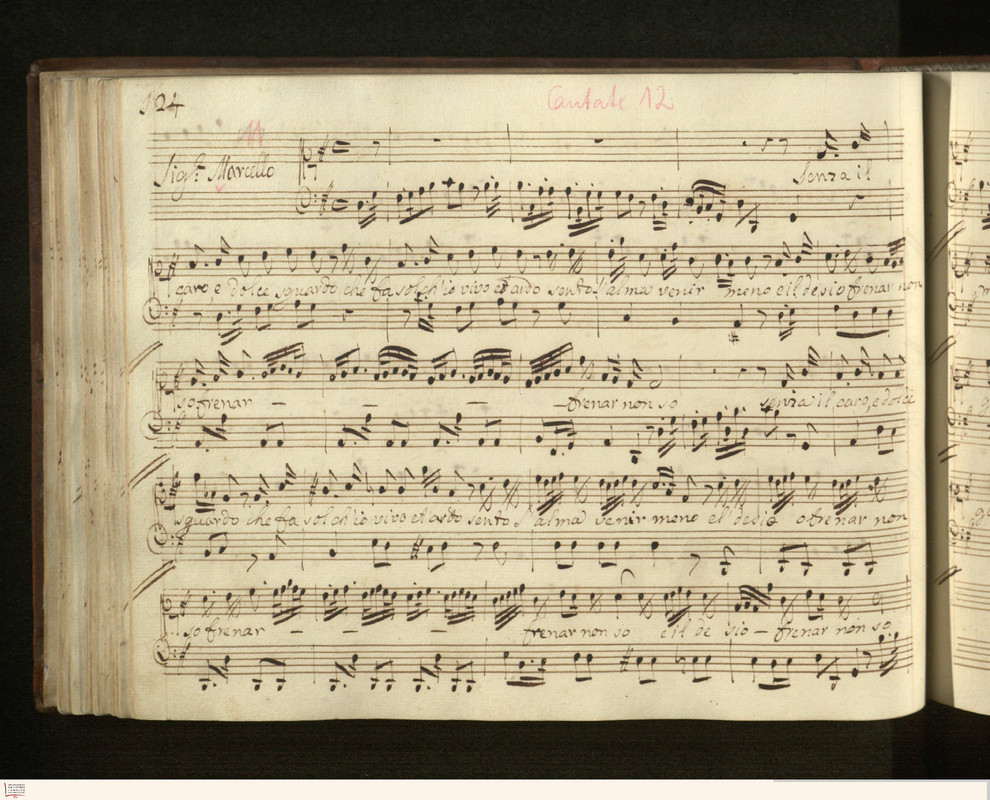 124
Cantate 12
11
Sig.r Marcello
Senza il
caro, e dolce sguardo che fa sol ch'io vivo et ardo sento l'alma venir meno e il desio frenar non
so frenar — — — frenar non so senza il caro, e dolce
sguardo che fa sol ch'io vivo et ardo sento l'alma venir meno e il desio frenar non
so frenar — — — frenar non so e il de sio — frenar non so